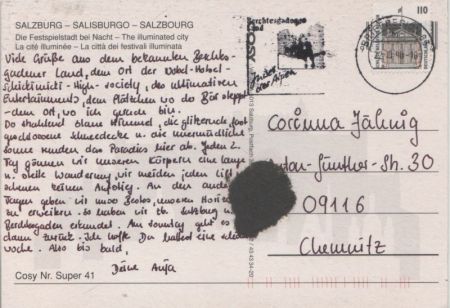 SALZBURG – SALISBURGO – SALZBOURG
Die Festspielstadt bei Nacht – The illuminated city
La cité illuminée – La città dei festivali illuminata
Viele Grüße aus dem bekannten Berchtes-
gadener Land, dem Ort der Nobel-Hobel-
Schickimicki-High-society, des ultimativen
Entertainments, dem Plätzchen wo der Bär steppt
-dem Ort, wo ich gerade bin.
Der strahlend blaue Himmel, die glitzernde, fast
geschlossene Schneedecke u. die unermüdliche
Sonne runden das Paradies hier ab. Jeden 2.
Tag gönnen wir unseren Körpern eine lange
u. steile Wanderung, wir meiden jeden Lift u.
scheuen keinen Aufstieg. An den anderen
Tagen geben wir unser Bestes, unseren Horizont
zu erweitern. So haben wir z.b. Salzburg u.
Berchtesgaden erkundet. Am Sonntag geht es
dann zurück. Ich hoffe Du hattest eine schöne
Woche. Also bis bald,
Deine Anja
Cosy Nr. Super 41
COSY
Berchtesgadener
Land
der Alpen
110
Corinna Jähnig
Anton-Günther-Str. 30
09116
Chemnitz